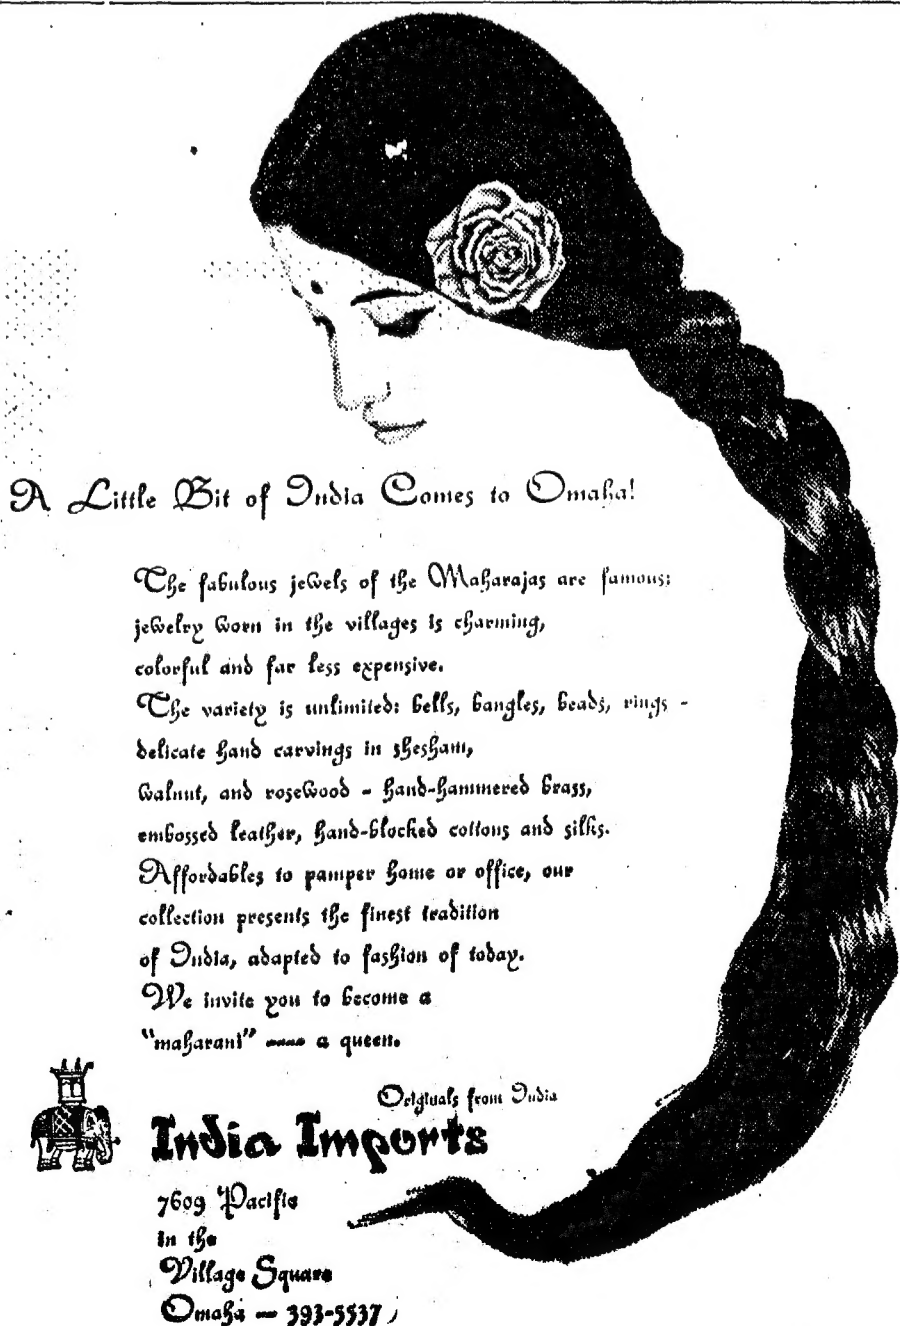 A Little Bit of India Comes to Omaha!
The fabulous jewels of the Maharajas are famous;
jewelry worn in the villages is charming,
colorful and far less expensive.
The variety is unlimited: bells, bangles, beads, rings -
delicate hand carvings in shesham,
walnut, and rosewood - hand-hammered brass,
embossed leather, hand-blocked cottons and silks.
Affordables to pamper home or office, our
collection presents the finest tradition
of India, adapted to fashion of today.
We invite you to become a
"maharani" ---- a queen.
Originals from India
India Imports
7609 Pacific
in the
Village Square
Omaha — 393-5537